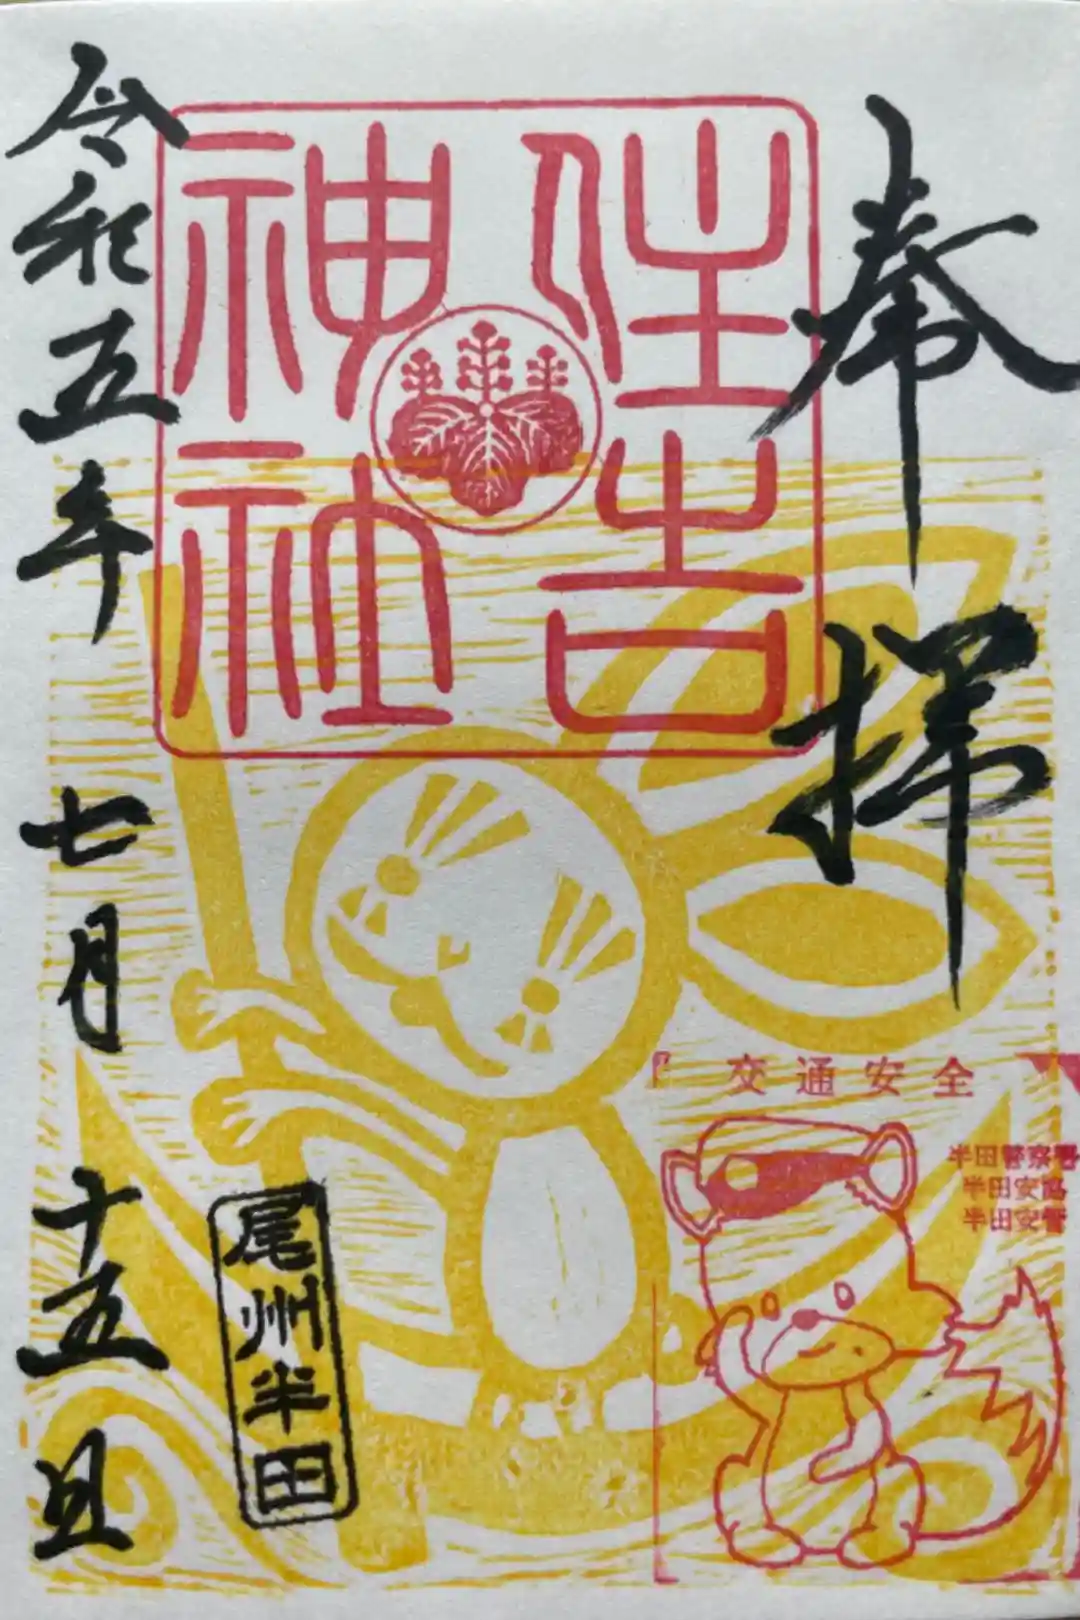 奉拝
住吉
神社
令和五年七月十五日
尾州半田
交通安全
半田警察署
半田安協
半田安管